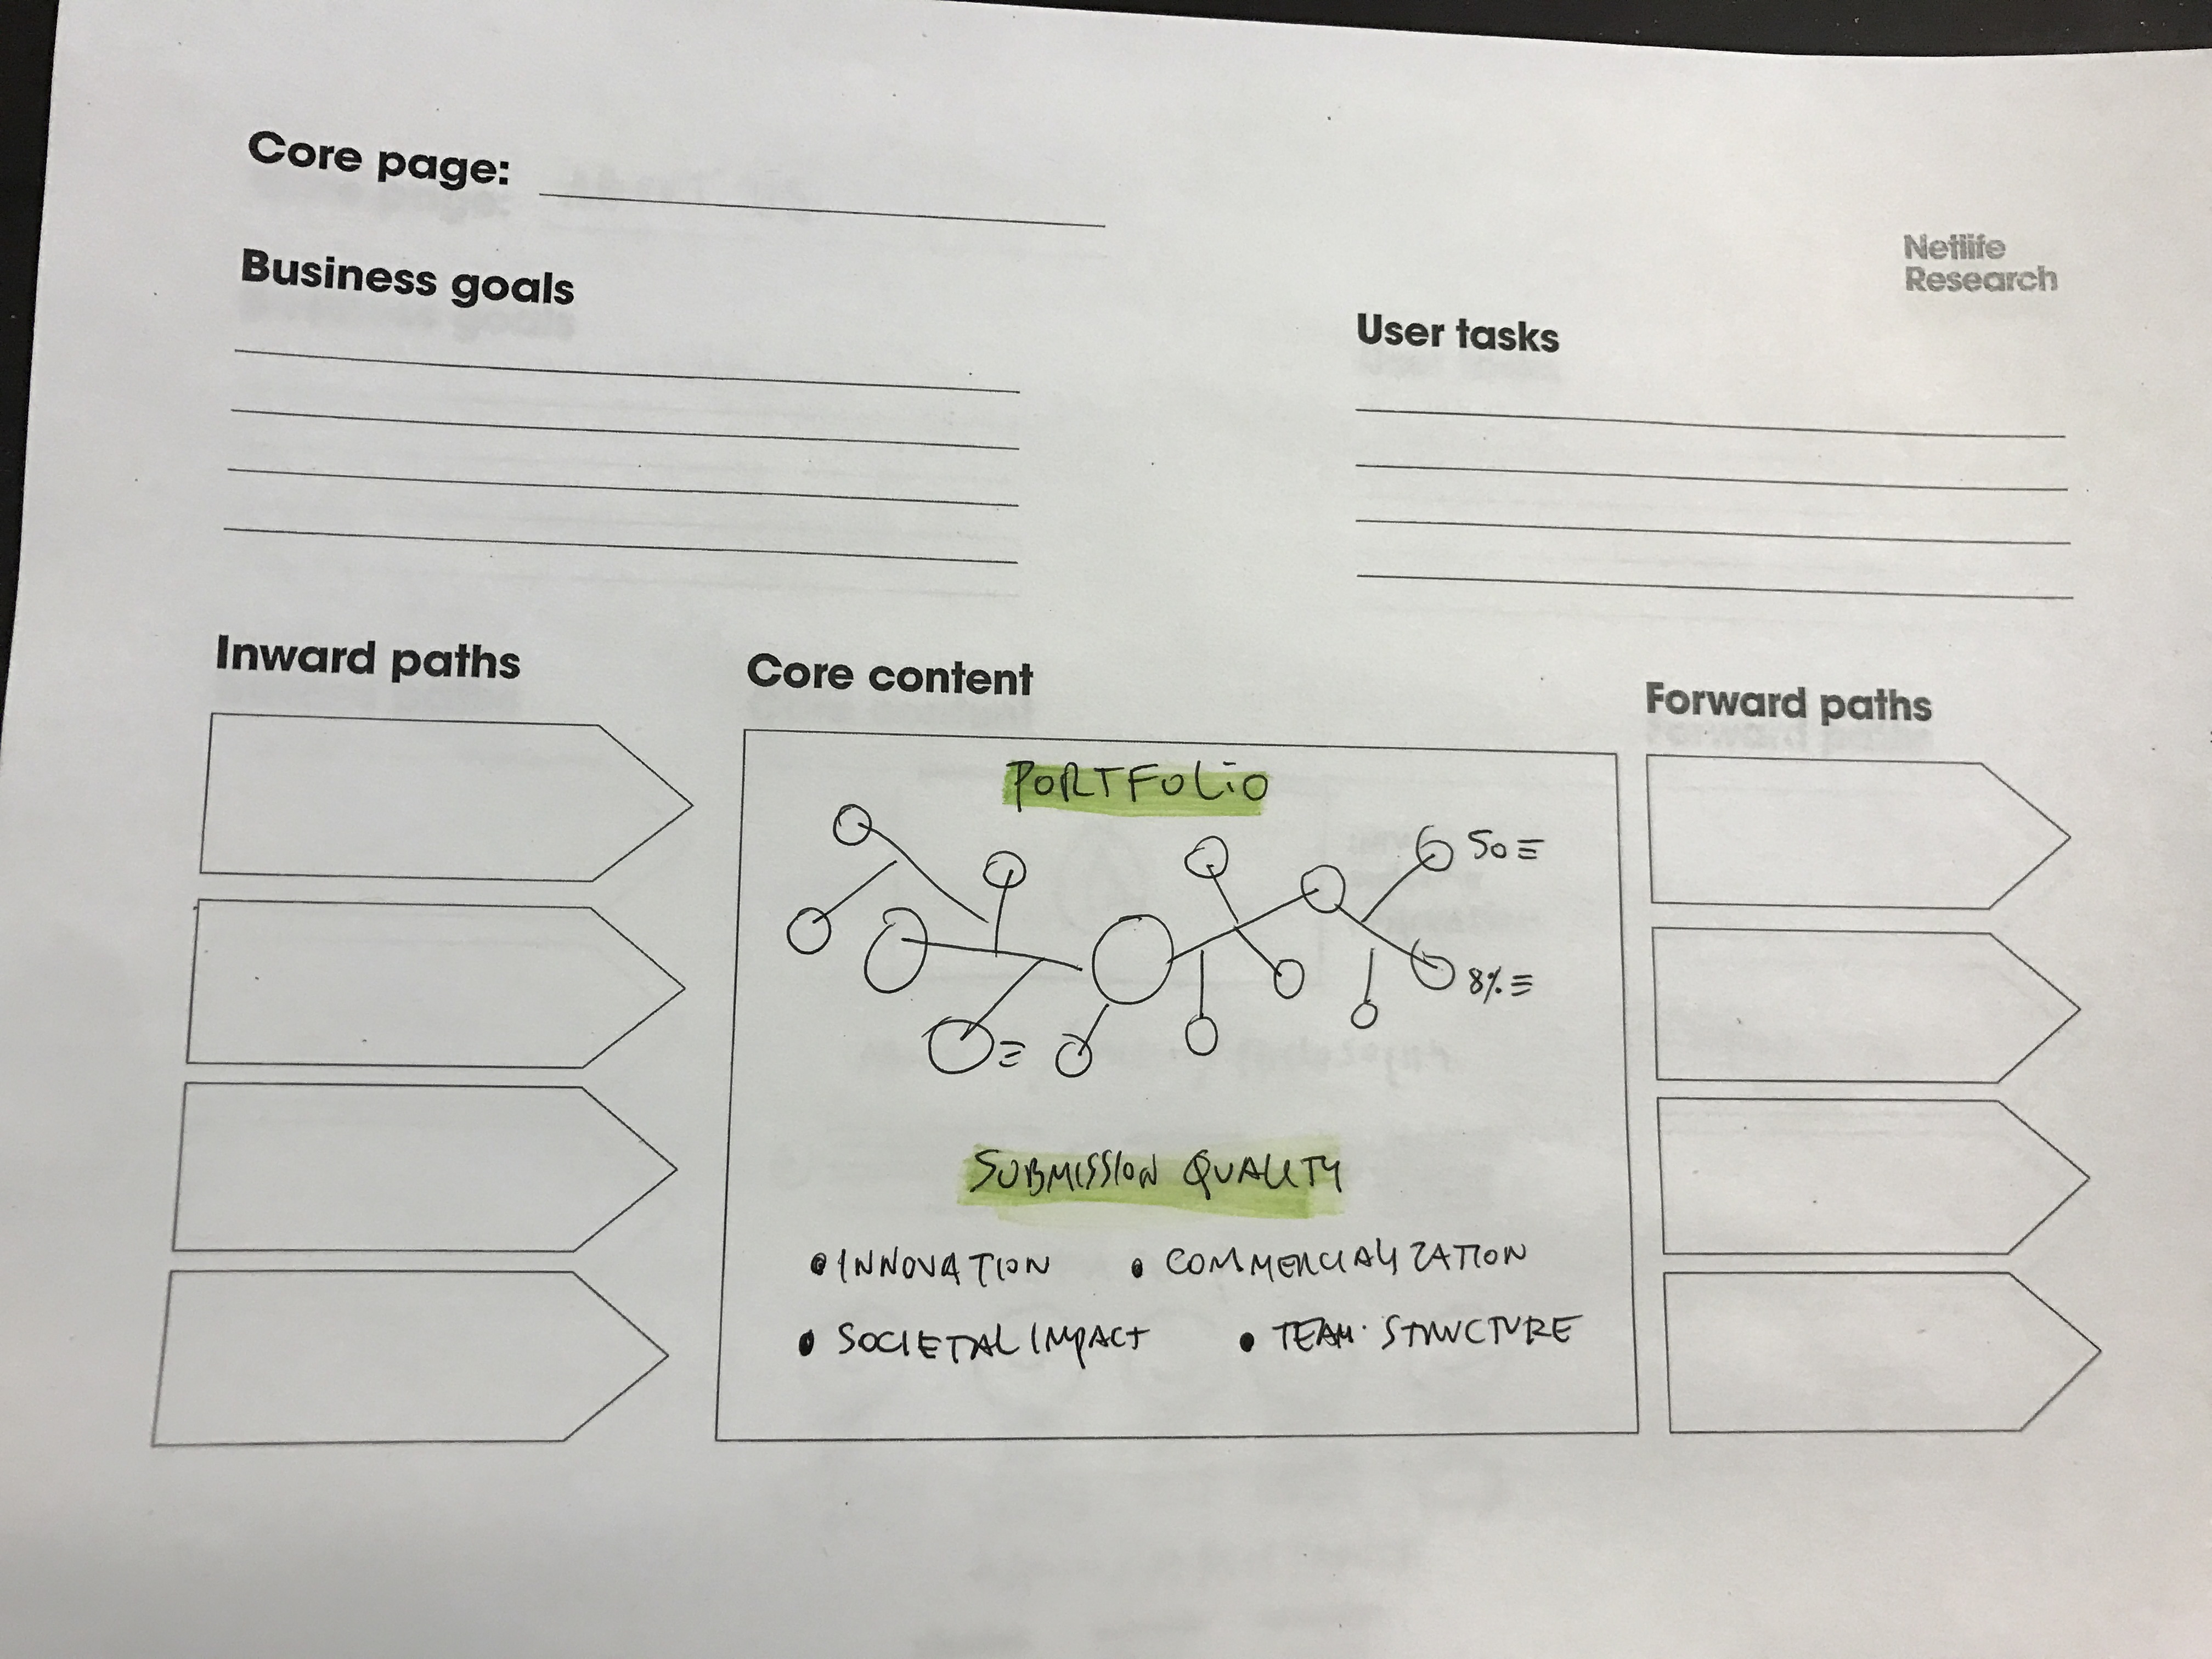 Core page:
Netlife
Research
Business goals
User tasks
Inward paths
Core content
Forward paths
PORTFOLIO
50
8%
SUBMISSION QUALITY
• INNOVATION • COMMERCIALIZATION
• SOCIETAL IMPACT • TEAM STRUCTURE